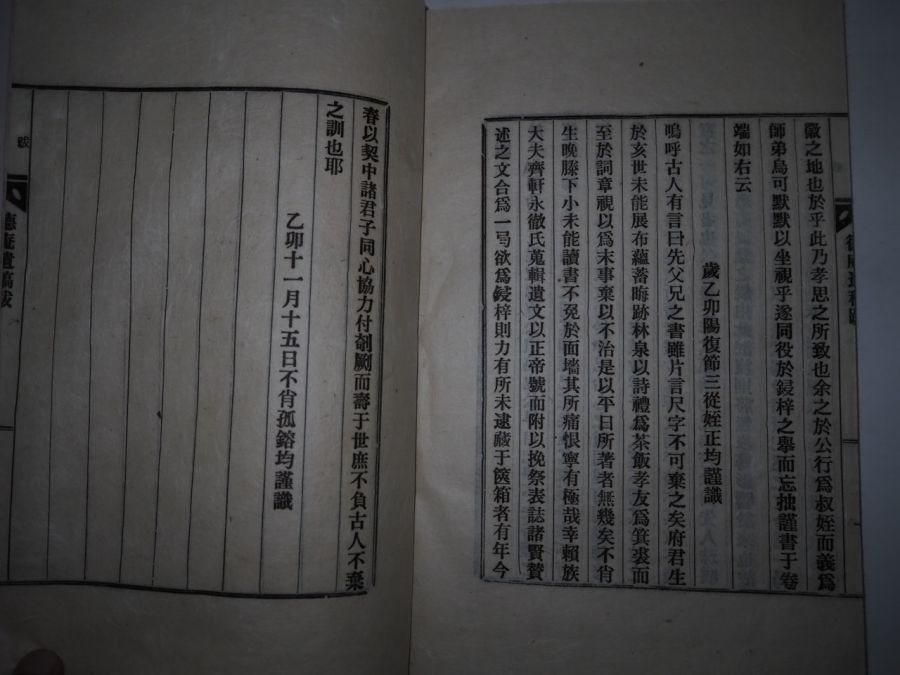 徽之地也於乎此乃孝思之所致也余之於公行爲叔姪而義爲
師弟烏可默默以坐視乎遂同役於鋟梓之擧而忘拙謹書于卷
端如右云
歲乙卯陽復節三從姪正均謹識
嗚呼古人有言曰先父兄之書雖片言尺字不可棄之矣府君生
於亥世未能展布蘊蓄晦跡林泉以詩禮爲茶飯孝友爲箕裘而
至於詞章視以爲末事棄以不治是以平日所著者無幾矣不肖
生晩滕下小未能讀書不免於面墻其所痛恨寧有極哉幸賴族
大夫齊軒永徹氏蒐輯遺文以正帝號而附以挽祭表誌諸賢贊
述之文合爲一弓欲爲鋟梓則力有所未逮藏于篋箱者有年今
春以契中諸君子同心協力付剞劂而壽于世庶不負古人不棄
之訓也耶
乙卯十一月十五日不肖孤鎔均謹識
跋
遺稿跋